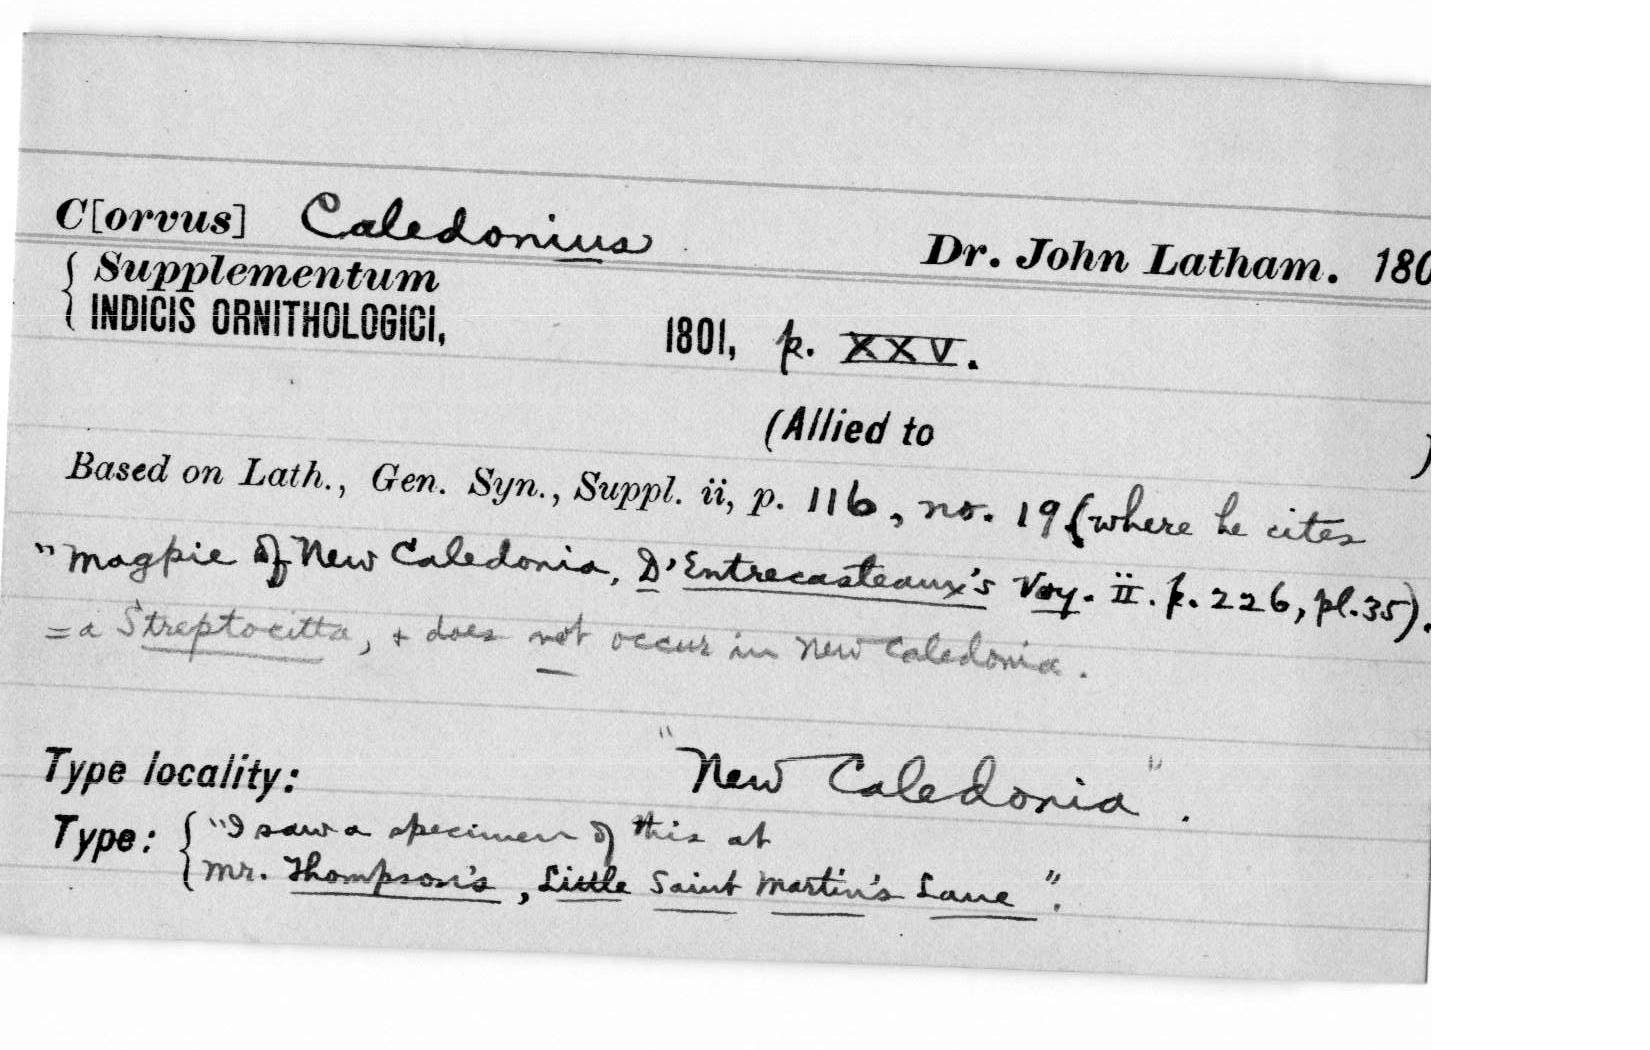 C[orvus] Caledonius Dr. John Latham. 180
Supplementum
INDICIS ORNITHOLOGICI, 1801, p. XXV.
(Allied to )
Based on Lath., Gen. Syn., Suppl. ii, p. 116, no. 19 (where he cites
"Magpie of New Caledonia, D'Entrecasteaux's Voy. ii. p. 226, pl. 35).
= a Streptocitta, + does not occur in New Caledonia.
Type locality: "New Caledonia".
Type: "I saw a specimen of this at
Mr. Thompson's, Little Saint Martin's Lane".